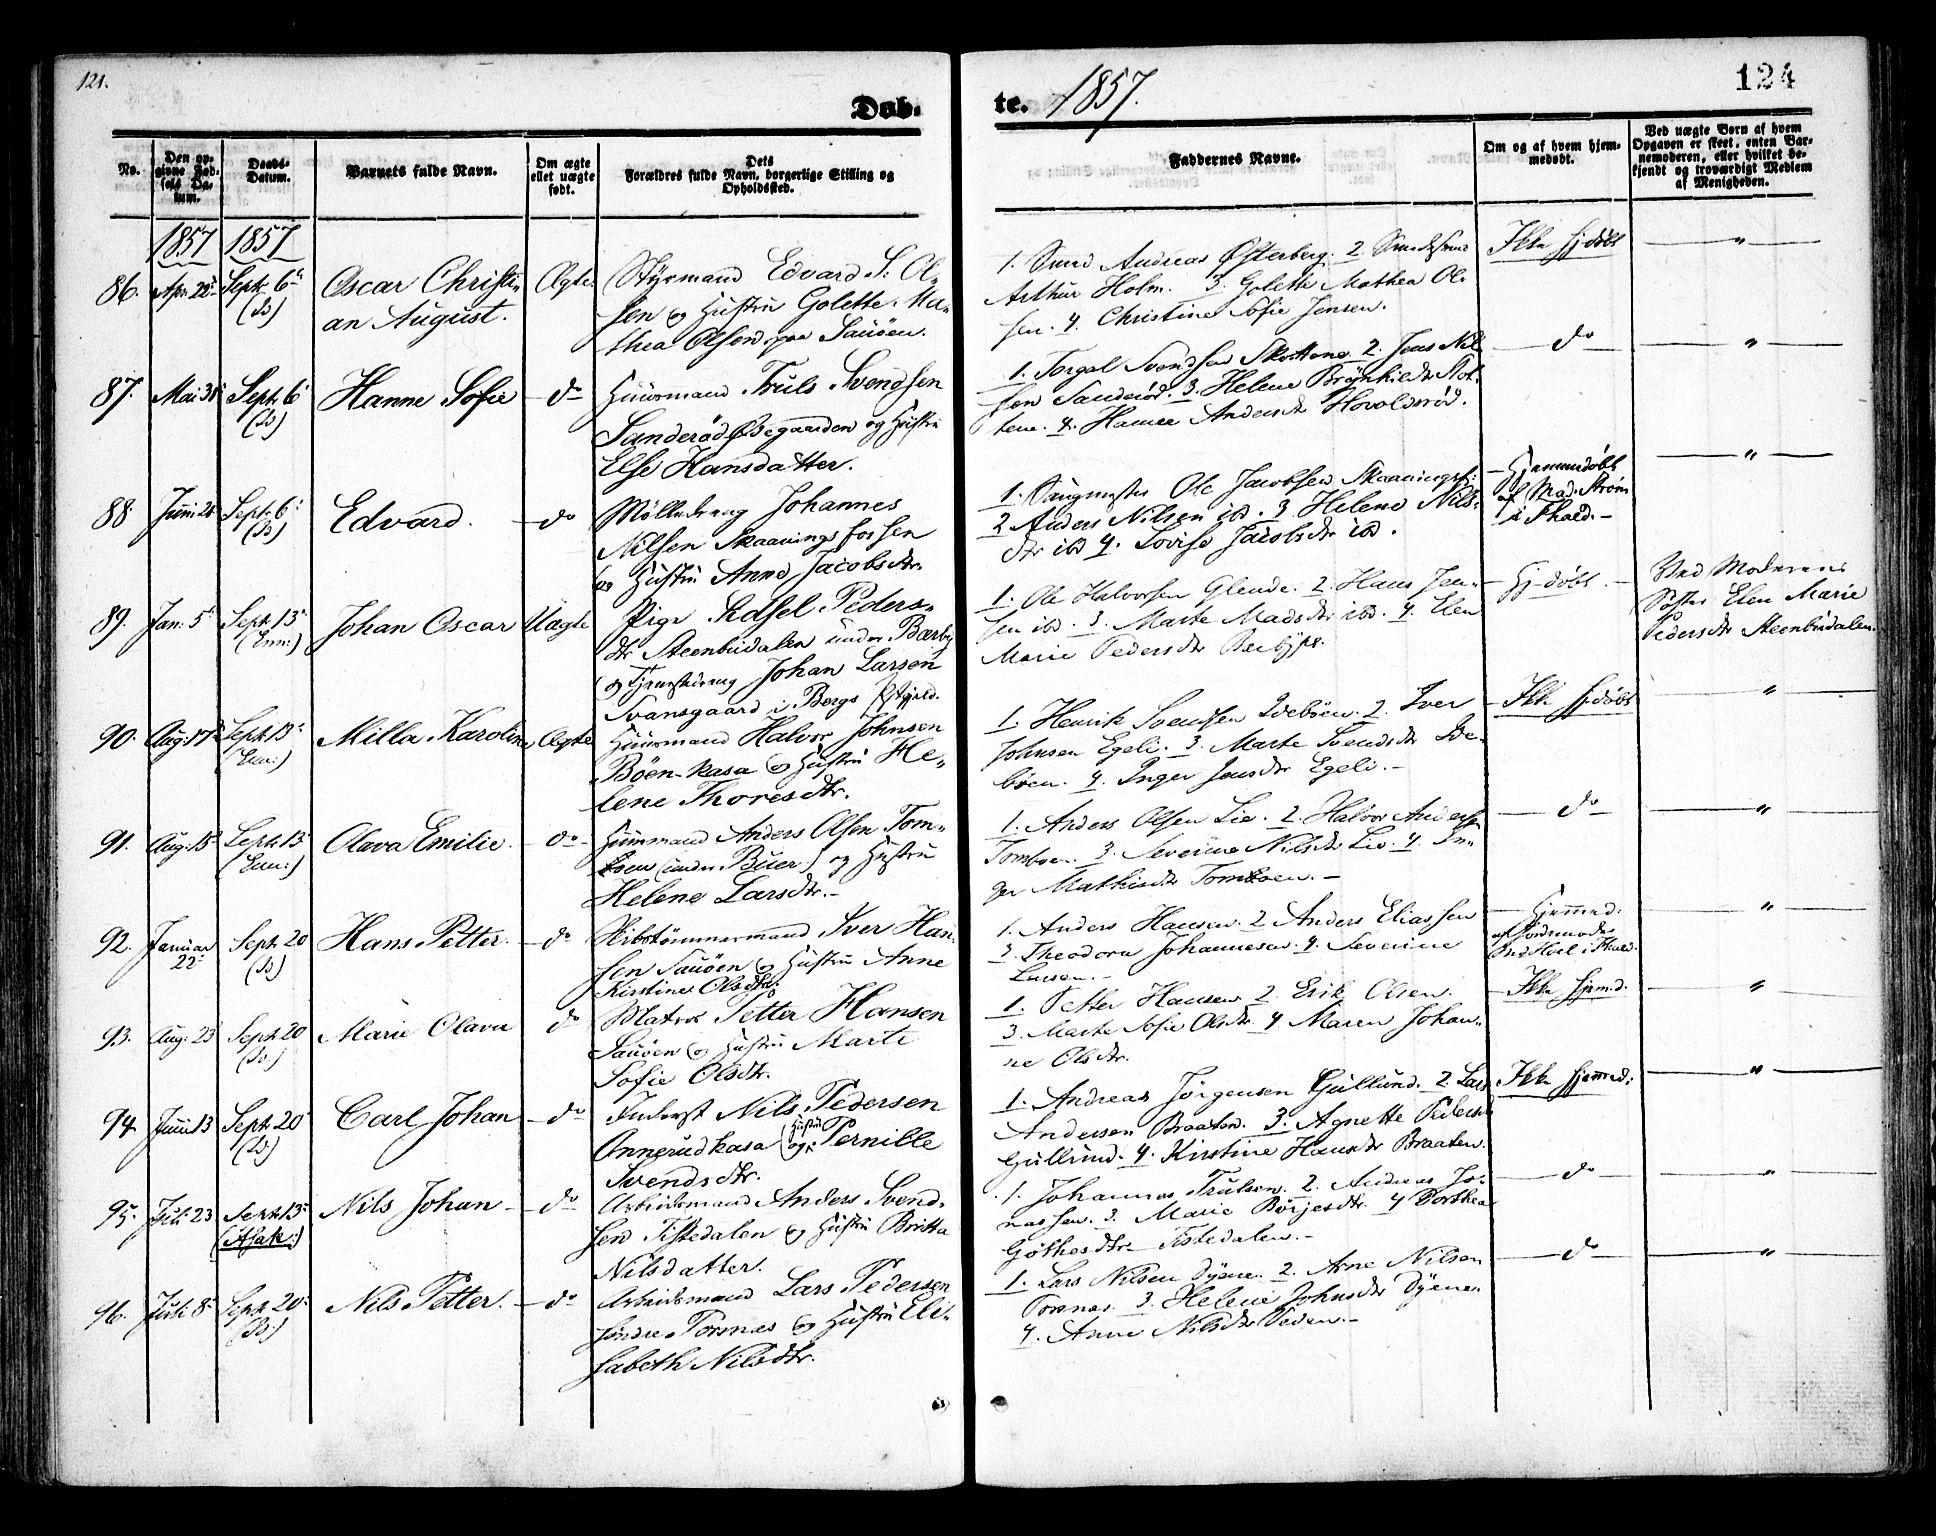 121.
124
Døb-
te. 1857.
No.
Den op-
givne Fød-
sels Da-
tum.
Daabs-
Datum.
Barnets fulde Navn.
Om ægte
ellet uægte
født.
Dets
Forældres fulde Navn, borgerlige Stilling og
Opholdssted.
Faddernes Navne.
Om og af hvem hjem-
medøbt.
Ved uægte Børn af hvem
Opgaven er skeet, enten Bar-
nemoderen, eller hvilket be-
kjendt og troværdigt Medlem
af Menigheden.
1857 1857
86. Apr. 22 Sept. 6
(Is)
Oscar Christi-
an August.
Ægte
Styrmand Edvard S. Ol-
sen og Hustru Golette Ma-
thea Olsen, paa Sauøen.
1. Smed Andreas Østerberg. 2.
Arthur Holm. 3. Golette Mathea Ol-
sen. 4. Christine Sofie Jensen.
Ikke hjdøbt
"
87. Mai 31 Sept. 6
(Is)
Hanne Sofie
do
Huusmand Truls Svendsen
Sanderød Øbegaarden og Hustru
Else Hansdatter.
1. Torgal Svendsen Skottene 2. Jens Nil-
sen Sanderød. 3. Helene Brynhildsdtr Skot-
tene. 4. Hanne Andersdtr Hovoldsrød.
do
"
88. Juni 24 Sept. 6
(Is)
Edvard.
do
Mølledreng Johannes
Nilsen Skaaningsfossen
og Hustru Anne Jacobsdtr.
1. Saugmester Ole Jacobsen Skaaningsf:
2 Anders Nilsen ibd. 3 Helene Nils-
dtr ibd 4. Lovise Jacobsdtr ibd.
Hjemmedøbt
af Mad. Strøm
i Fhald.
"
89. Jan. 5 Sept. 13
(Enn:)
Johan Oscar
Uægte
Pige Axsel Peders-
dtr Steenbudalen under Bærby
og Tjenestedreng Johan Larsen
Svansgaard i Bergs Prstgjeld.
1. Ole Halvorsen Glende. 2. Hans Jen-
sen ibd. 3. Marte Madsdtr ibd. 4. Elen
Marie Pedersdtr Berbyps.
Hjdøbt.
Ved Moderens
Søster Elen Marie
Pedersdtr Steenbudalen.
90. Aug. 17 Sept. 13
(Enn:)
Milla Karoline
Ægte
Huusmand Halvor Johnsen
Bøen-kasa og Hustru He-
lene Thoresdtr.
1. Henrik Svendsen Idebøen. 2. Iver
Johnsen Egeli. 3. Marte Svendsdtr Ide-
bøen. 4. Inger Jensdtr Egeli.
Ikke hjdøbt
"
91. Aug. 15 Sept. 13
(Enn:)
Olava Emilie.
do
Huusmand Anders Olsen Tom-
boen (under Buer) og Hustru
Helene Larsdtr.
1. Anders Olsen Lie. 2. Halvor Andersen
Tomboen. 3. Severine Nilsdtr Lie. 4. In-
ger Mathisdtr Tomboen.
do
"
92. Januar
22. Sept. 20
(Is)
Hans Petter.
do
Skibstømmermand Iver Han-
sen Sauøen og Hustru Anne
Kirstine Olsdtr.
1. Anders Hansen. 2 Anders Eliassen
3. Theodora Johannesen. 4. Severine
Larsen.
Hjemmed.
af Jordemoder
Md Hoel i Fhald.
"
93. Aug. 23 Sept. 20
(Is)
Marie Olava
do
Matros Petter Hansen
Sauøen og Hustru Marte
Sofie Olsdtr.
1. Petter Hansen. 2. Erik Olsen.
3. Marte Sofie Olsdtr 4 Maren Johan-
ne Olsdtr.
Ikke hjemd.
"
94. Juni 13 Sept. 20
(Is)
Carl Johan
do
Inderst Nils Pedersen
Annerudkasa og Hustru Pernille
Svendsdtr.
1. Andreas Jørgensen Gullund. 2. Lars
Andersen Braaten. 3. Agnette Pedersdtr
Gullund. 4. Kirstine Hansdtr Braaten.
Ikke hjemmed:
"
95. Juli 23 Sept. 13
(Asak:)
Nils Johan
do
Arbeidsmand Anders Svend-
sen Tistedalen og Hustru Britta
Nilsdatter.
1. Johannes Trulsen. 2. Andreas Jo-
nassen. 3. Marie Børjesdtr. 4 Dorthea
Gøthesdtr Tistedalen.
do
"
96. Juli 8 Sept. 20
(Is)
Nils Petter.
do
Arbeidsmand Lars Pedersen
søndre Torsnes og Hustru Eli-
sabeth Nilsdtr.
1. Lars Nilsen Dyene. 2. Arne Nilsen
Torsnes. 3. Helene Johnsdtr Dyene.
4. Anne Nilsdtr Veden.
do
"